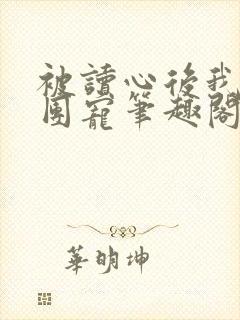 被讀心後我
團寵筆趣閣
華明坤